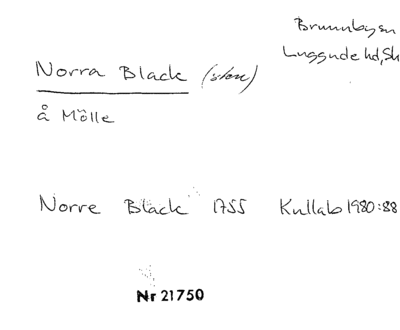 Brunnby sn
Luggude hd, Sk
Norra Black (sten)
å Mölle
Norre Black 1755 Kullab 1980:88
Nr 21750